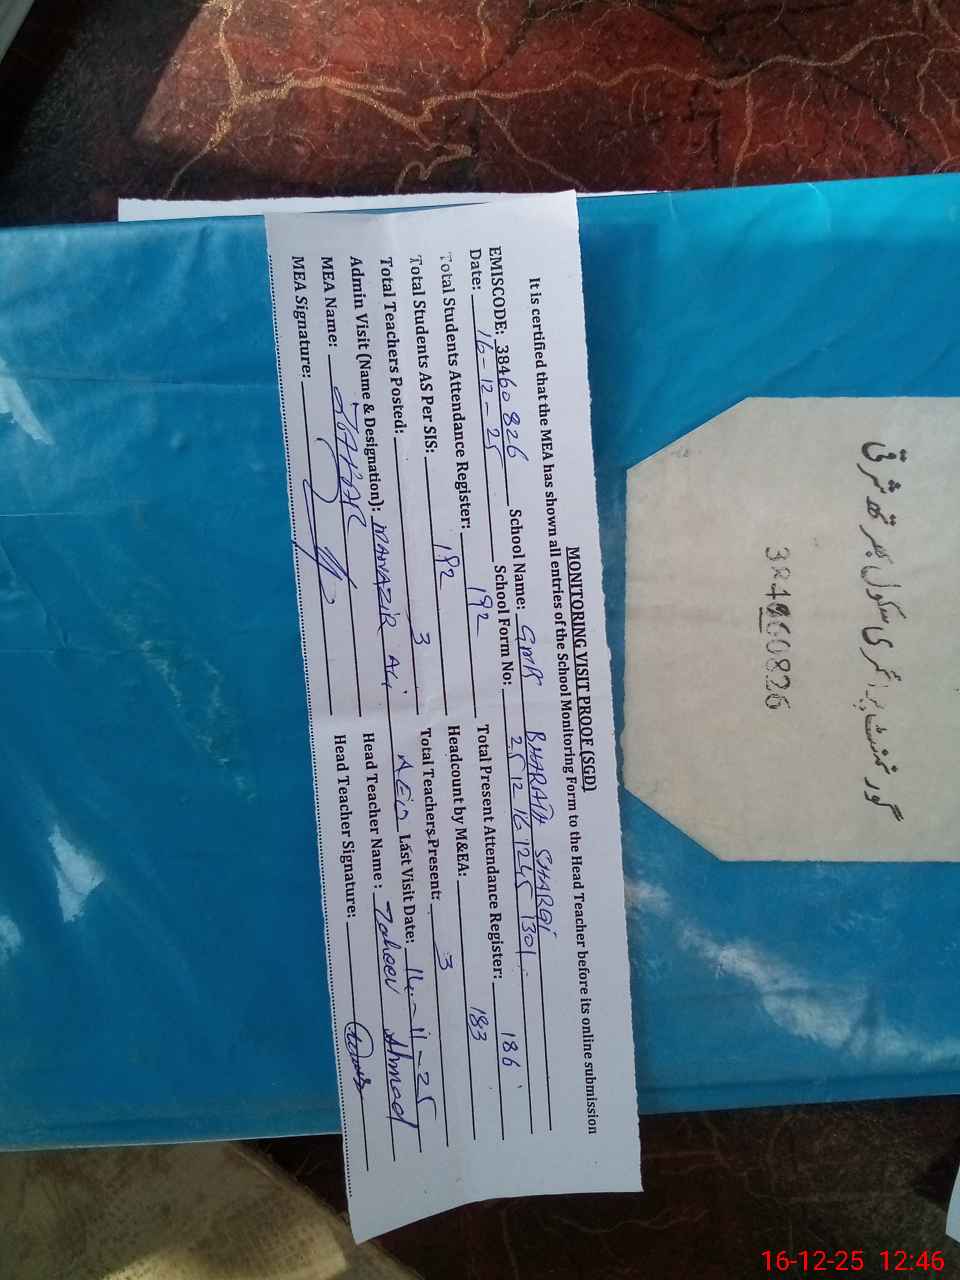 MONITORING VISIT PROOF (SGD)
It is certified that the MEA has shown all entries of the School Monitoring Form to the Head Teacher before its online submission
EMISCODE: 38460826 School Name: GMPS BHARATH SHARQI
Date: 16-12-25 School Form No: 2512161245 1301
Total Students Attendance Register: 192 Total Present Attendance Register: 186
Total Students AS Per SIS: 192 Headcount by M&EA: 183
Total Teachers Posted: 3 Total Teachers Present: 3
Admin Visit (Name & Designation): MANAZIR ALI AEO Last Visit Date: 14-11-25
MEA Name: Head Teacher Name: Zaheer Ahmad
MEA Signature: Head Teacher Signature:
گورنمنٹ پرائمری سکول بھرتھ شرقی
16-12-25 12:46